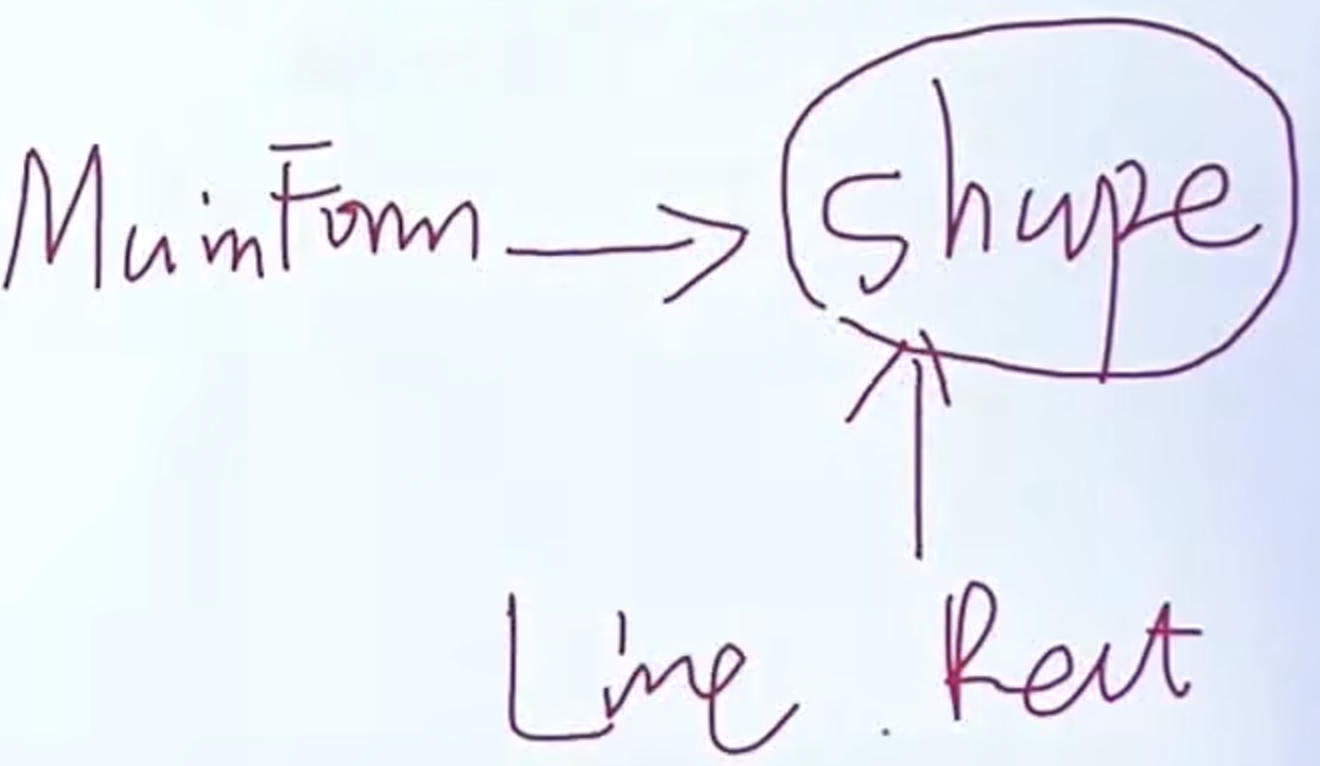 MainForm → Shape
Line . Rect